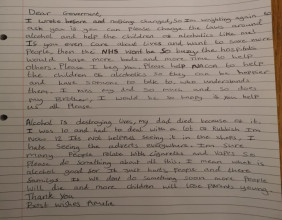 Dear Governor,
I wrote before and nothing changed, so I'm writing again to
ask you is you can Please change the laws around
alcohol and help the children of alcoholics like me!
Is you even care about lives and want to save more
People then the NHS wont be so busy the hospitals
would have more beds and more time to help
others. Please I beg you Please help NACOA to help
the children of alcoholics so they can be happier
and have someone to talk to who understands
them. I miss my dad so much and so does
my brother. I would be so happy is you help
us all Please.
Alcohol is destroying lives, my dad died because of it.
I was 10 and had to deal with a lot of Rubbish I'm
now 12. Its not helpful seeing it in the shops, I
hate seeing the adverts everywhere. I'm sure
many People relate with cigarettes and vapes so
Please do something about all this. I mean what is
alcohol good for it Just hurts people and there
families. Is we dont do something soon more People
will die and more children will lose parents young.
Thank You
Best wishes Amelia